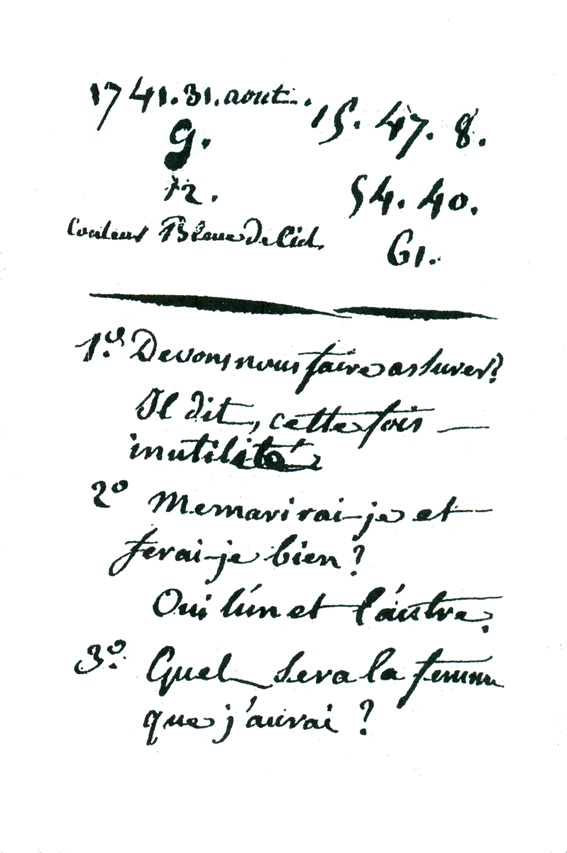 1741. 31. aout. 15. 47. 8.
9.
72. 54. 40.
Couleur Bleue de Ciel. 61.
1º. Devons nous faire assurer?
Il dit, cette fois —
inutilité
2º Memarirai-je et
ferai-je bien ?
Oui l'un et l'autre.
3º. Quel sera la femme
que j'aurai ?